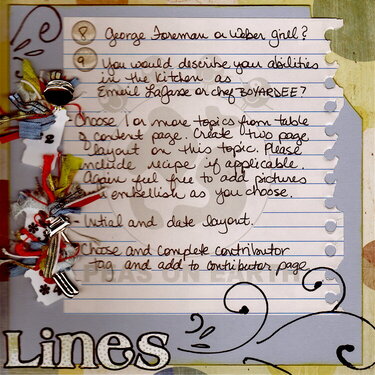 8 George Foreman or Weber grill?
9 You would describe your abilities
in the kitchen as
Emeril Lagasse or chef BOYARDEE?
- Choose 1 or more topics from table
of content page. Create two page
layout on this topic. Please
include recipe if applicable.
Again feel free to add pictures
and embellish as you choose.
- Initial and date layout.
- Chose and complete contributor
tag and add to contributor page
PEAS ON EARTH
Lines